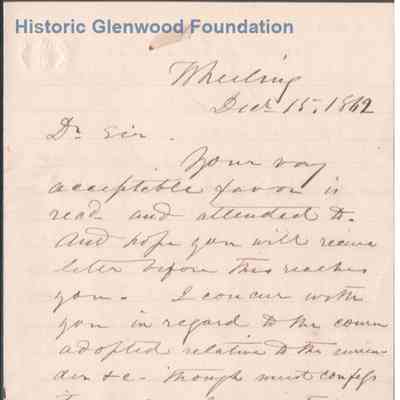 Historic Glenwood Foundation
Wheeling
Decr 15, 1862
Dr Sir.
Your very
acceptable favor is
read and attended to.
And hope you will receive
letter before this reaches
you. I concur with
you in regard to the course
adopted relative to the surren-
der &c. though must confess